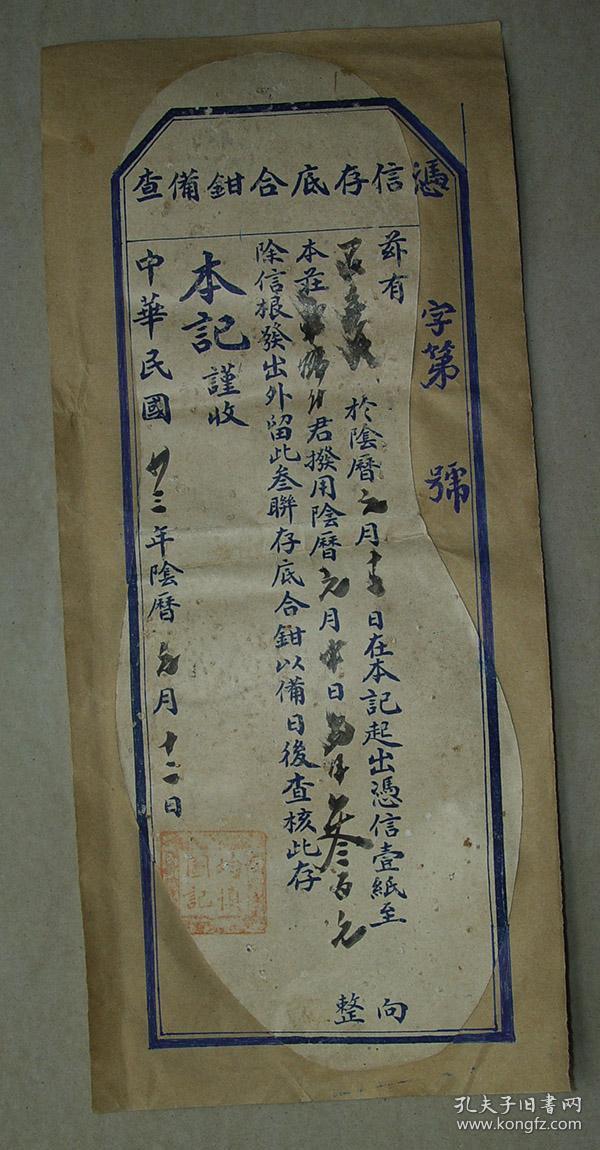 憑信存底合鉗備查
字第 號
茲有 於陰曆元月 日在本記起出憑信壹紙至
向
本莊 君撥用陰曆元月 日 叁百元
整
除信根發出外留此叁聯存底合鉗以備日後查核此存
本記謹收
中華民國廿三年陰曆元月十二日
圖記
孔夫子旧书网
www.kongfz.com